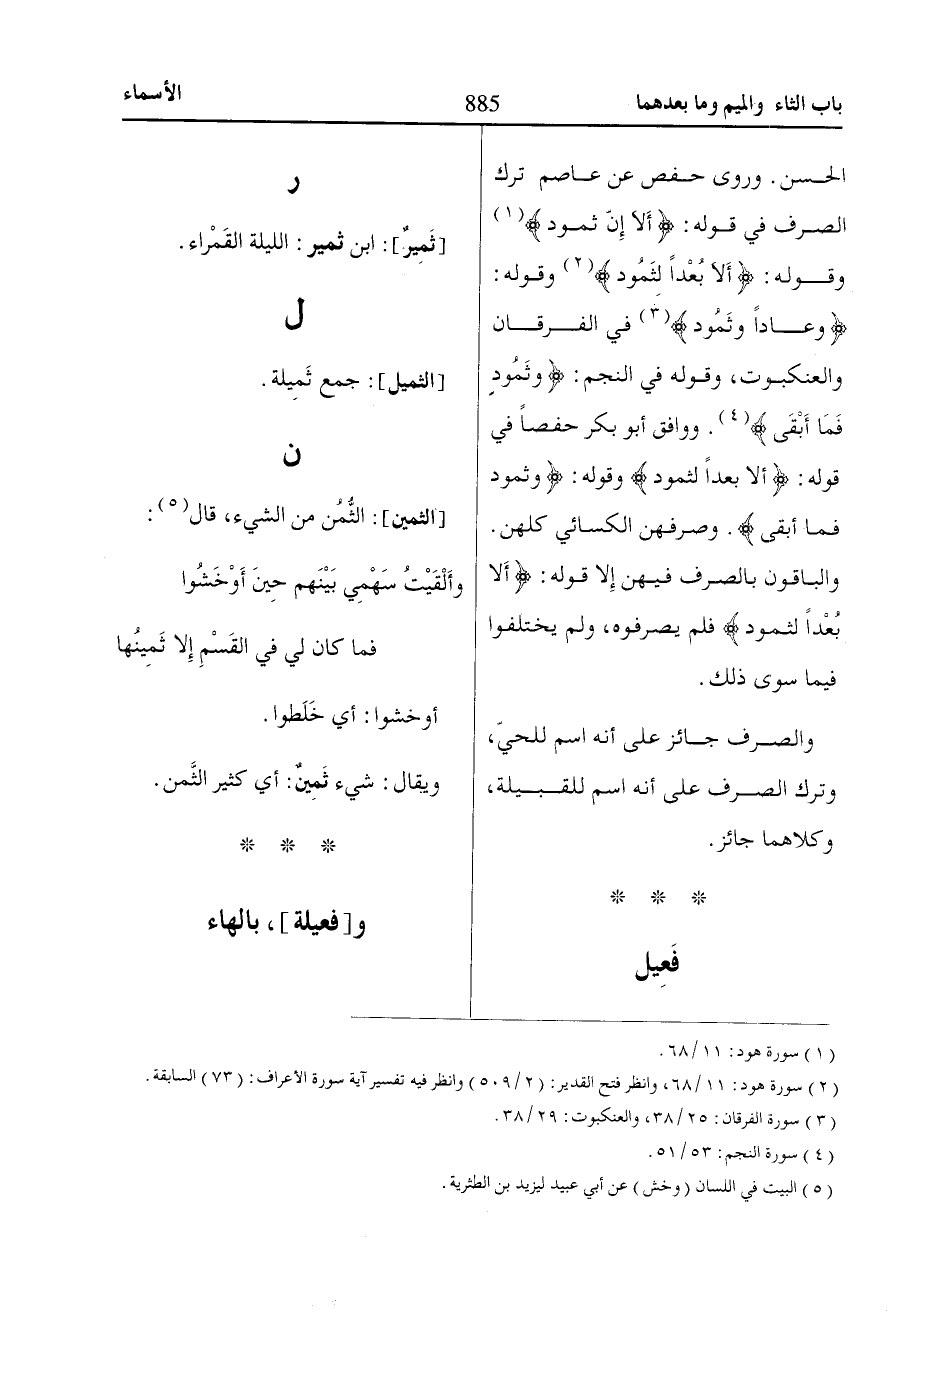 باب الثاء والميم وما بعدهما
885
الأسماء
الحسن. وروى حفص عن عاصم ترك
الصرف في قوله: ﴿ألا إنّ ثمود﴾(١)
وقوله: ﴿أَلاَ بُعْداً لثَمُود﴾(٢) وقوله:
﴿وعاداً وثَمُود﴾(٣) في الفرقان
والعنكبوت، وقوله في النجم: ﴿وثَمُود
فَمَا أَبْقَى﴾(٤). ووافق أبو بكر حفصاً في
قوله: ﴿ألا بعداً لثمود﴾ وقوله: ﴿وثمود
فما أبقى﴾. وصرفهن الكسائي كلهن.
والباقون بالصرف فيهن إلا قوله: ﴿ألا
بُعْداً لثمود﴾ فلم يصرفوه، ولم يختلفوا
فيما سوى ذلك.
والصرف جائز على أنه اسم للحيّ،
وترك الصرف على أنه اسم للقبيلة،
وكلاهما جائز.
* * *
فَعِيل
ر
[ثَمِيرٌ]: ابن ثمير: الليلة القَمْراء.
ل
[الثميل]: جمع ثَمِيلة.
ن
[الثمين]: الثُّمُن من الشيء، قال(٥):
وأَلْقَيْتُ سَهْمِي بَيْنَهم حينَ أَوْخَشُوا
فما كان لي في القَسْمِ إلا ثَمِينُها
أوخشوا: أي خَلَطوا.
ويقال: شيء ثَمِينٌ: أي كثير الثَّمن.
* * *
و[فعيلة]، بالهاء
(١) سورة هود: ١١/ ٦٨.
(٢) سورة هود: ١١/ ٦٨، وانظر فتح القدير: (٢/ ٥٠٩) وانظر فيه تفسير آية سورة الأعراف: (٧٣) السابقة.
(٣) سورة الفرقان: ٢٥/ ٣٨، والعنكبوت: ٢٩/ ٣٨.
(٤) سورة النجم: ٥٣/ ٥١.
(٥) البيت في اللسان (وخش) عن أبي عبيد ليزيد بن الطثرية.